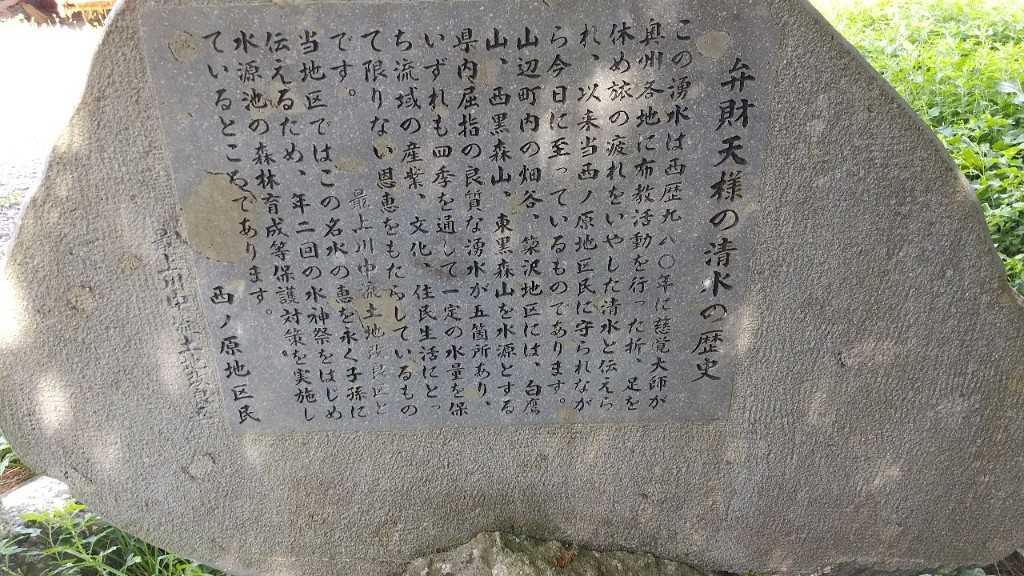 弁財天様の清水の歴史
この湧水は西歴九八〇年に慈覚大師が
奥州各地に布教活動を行った折、足を
休め旅の疲れをいやした清水と伝えら
れ、以来当西ノ原地区民に守られなが
ら今日に至っているものであります。
山辺町内の畑谷、簗沢地区には、白鷹
山、西黒森山、東黒森山を水源とする
県内屈指の良質な湧水が五箇所あり、
いずれも四季を通して一定の水量を保
ち流域の産業、文化、住民生活にとっ
て限りない恩恵をもたらしているもの
です。
最上川中流土地改良区と
当地区ではこの名水の恵を永く子孫に
伝えるため、年二回の水神祭をはじめ
水源池の森林育成等保護対策を実施し
ているところであります。
西ノ原地区民
最上川中流土